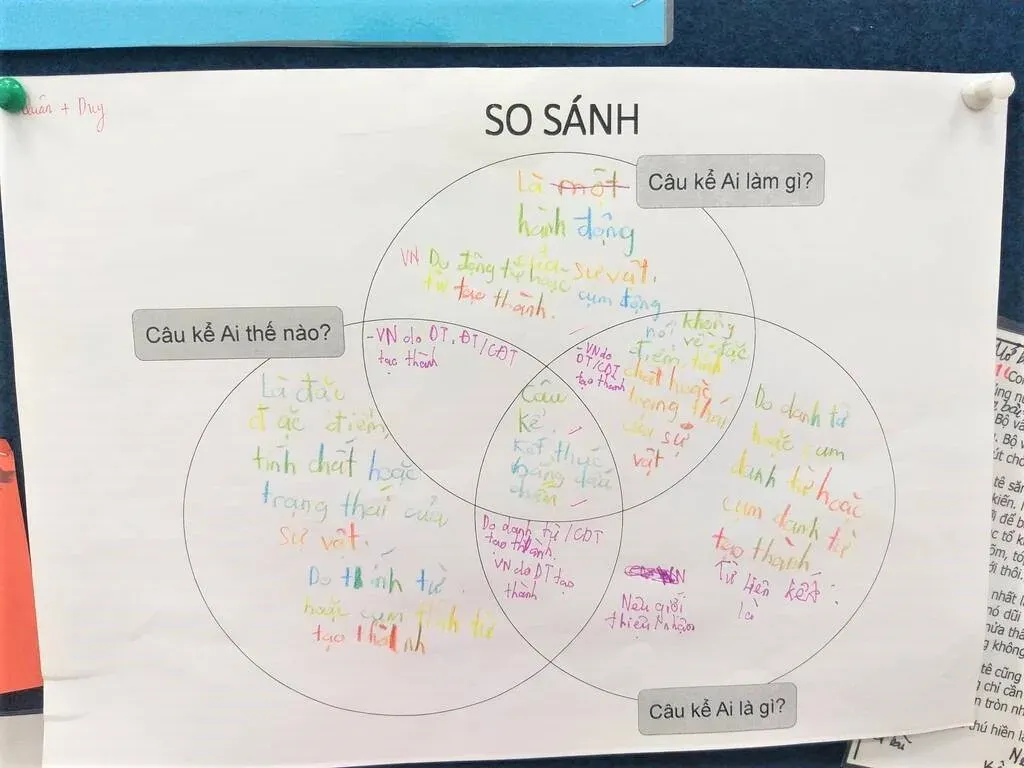 Duy
SO SÁNH
Câu kể Ai làm gì?
Là một
hành động
của sự vật.
VN Do động từ hoặc cụm động
từ tạo thành.
Câu kể Ai thế nào?
-VN do DT, ĐT/CĐT
tạo thành
-VN do
ĐT/CĐT
tạo thành
không
nói về đặc
điểm, tính
chất hoặc
trạng thái
của sự
vật
Câu
kể.
kết thúc
bằng dấu
chấm
Là đặc
đặc điểm,
tính chất hoặc
trạng thái của
sự vật.
Do tính từ
hoặc cụm tính từ
tạo thành
Do danh từ
hoặc cụm
danh từ hoặc
cụm danh từ
tạo thành
Từ liên kết:
là
Do danh từ/CDT
tạo thành.
VN do DT tạo
thành
Nêu giới
thiệu, nhận
Câu kể Ai là gì?